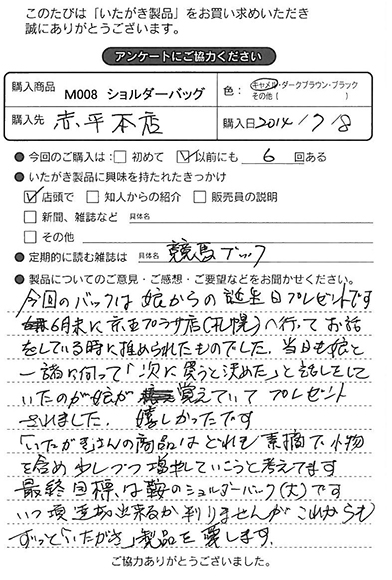 このたびは「いたがき製品」をお買い求めいただき
誠にありがとうございます。
アンケートにご協力ください
購入商品 M008 ショルダーバッグ 色：キャメル・ダークブラウン・ブラック
その他（ ）
購入先 赤平本店 購入日 2014 / 7 / 8
● 今回のご購入は：□ 初めて ☑ 以前にも 6 回ある
● いたがき製品に興味を持たれたきっかけ
☑ 店頭で □ 知人からの紹介 □ 販売員の説明
□ 新聞、雑誌など 具体名
□ その他
● 定期的に読む雑誌は 具体名 競馬ブック
● 製品についてのご意見・ご感想・ご要望などをお聞かせください。
今回のバックは娘からの誕生日プレゼントです
6月末に京王プラザ店(札幌)へ行ってお話
をしている時に推められたものでした。当日も娘と
一諸に伺って「次に買うと決めた」と話をして
いたのが娘が覚えていてプレゼント
されました。嬉しかったです
「いたがき」さんの商品はどれも素摘で小物
を含め少しづつ増していこうと考えてます
最終目標は鞍のショルダーバック(大)です
いつ頃達成出来るか判りませんがこれからも
ずっと「いたがき」製品を愛します。
ご協力ありがとうございました。